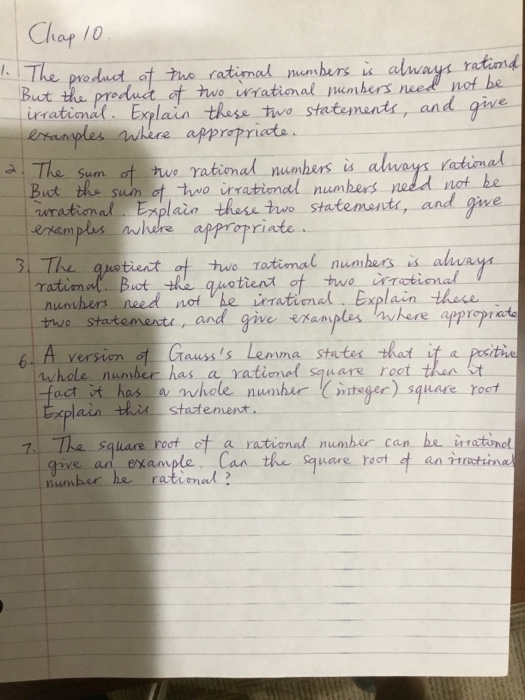 Chap 10.
1. The product of two rational numbers is always rational
But the product of two irrational numbers need not be
irrational. Explain these two statements, and give
examples where appropriate.
2. The sum of two rational numbers is always rational
But the sum of two irrational numbers need not be
irrational. Explain these two statements, and give
examples where appropriate.
3. The quotient of two rational numbers is always
rational. But the quotient of two irrational
numbers need not be irrational. Explain these
two statements, and give examples where appropriate
6. A version of Gauss's Lemma states that if a positive
whole number has a rational square root then it
fact it has a whole number (integer) square root
Explain this statement.
7. The square root of a rational number can be irrational
give an example. Can the square root of an irrational
number be rational?